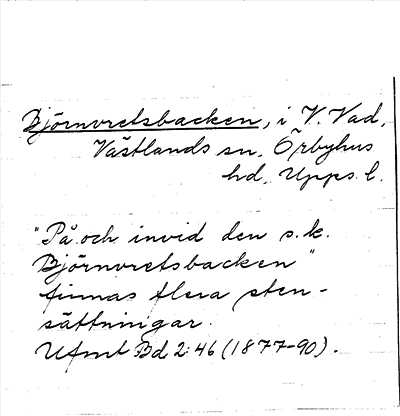 Björnvretsbacken, i V. Vad,
Västlands sn, Örbyhus
hd, Upps. l.
"På och invid den s.k.
Björnvretsbacken"
finnas flera sten-
sättningar.
Ufmt Bd 2:46 (1877-90).